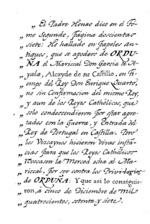 El Padre Henao dice en el To-
mo segundo, pagina doscientas
siete: He hallado en papeles an-
tiguos, que se apoderó de ORDU-
ÑA el Mariscal Don Garcia de A-
yala, Alcayde de su Castillo, en ti-
empo del Rey Don Enrique Quarto,
no sin Confirmacion del mismo Rey,
y aun de los Reyes Catholicos, que
solo condescendieron por estar apre-
tados con la Guerra, y Entrada del
Rey de Portugal en Castilla. Pero
los Vizcaynos hicieron vivas ins-
tancias para que los Reyes Catholicos
la Merced al Ma-
riscal, por ser contra los Privilegios
de ORDUÑA. Y que así lo consiguie-
ron à cinco de Diciembre de mil
quatrocientos, setenta, y siete.